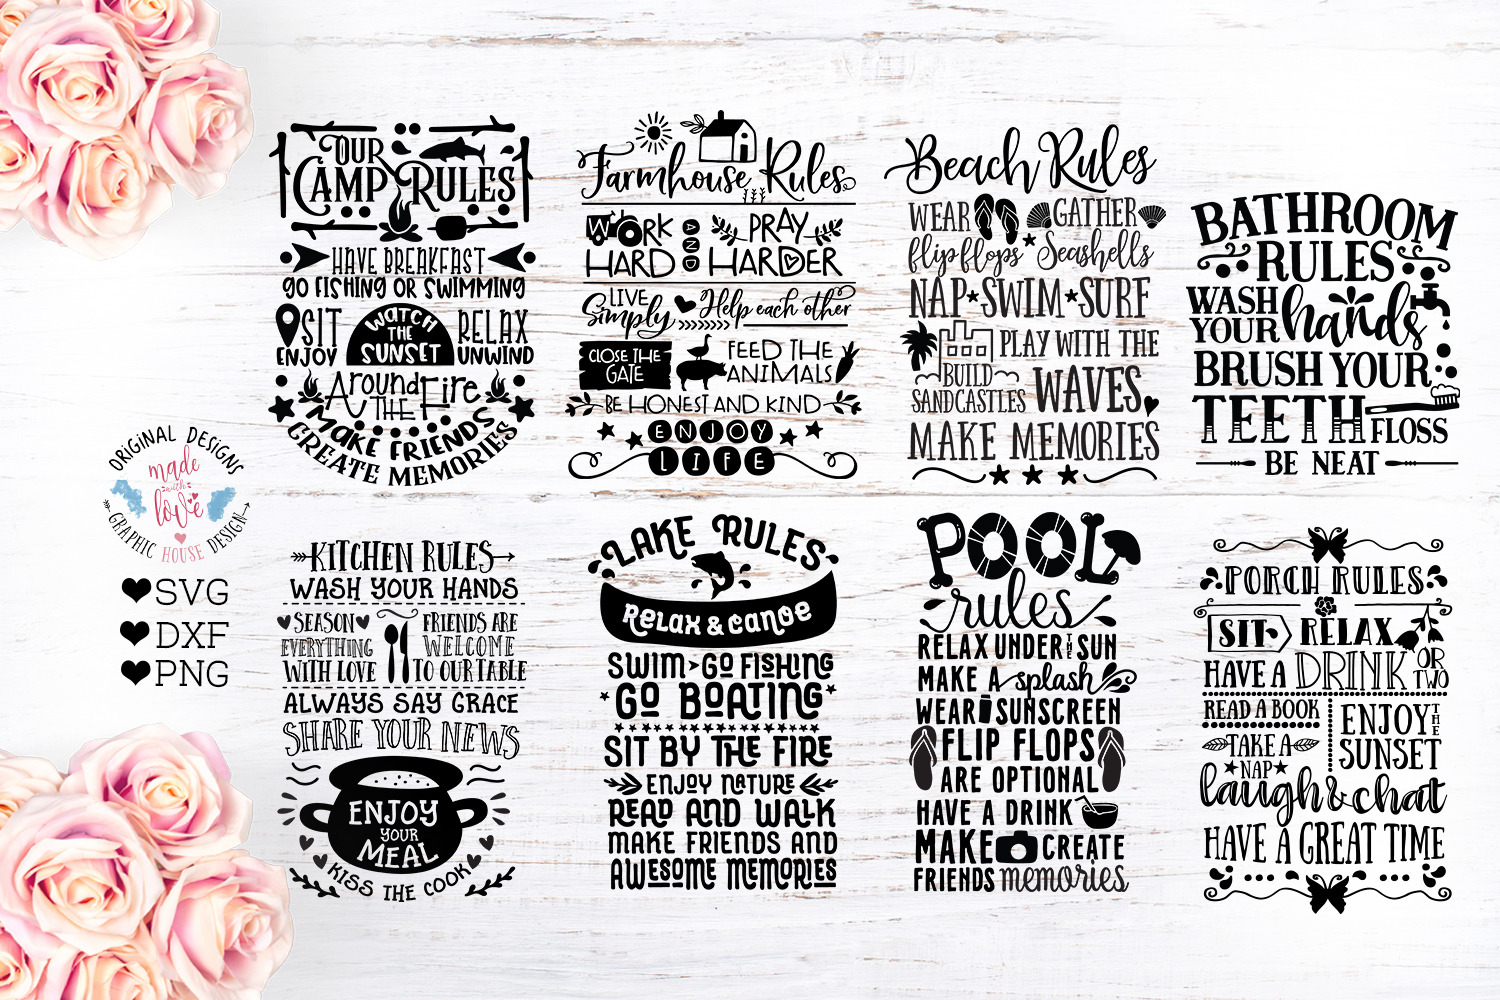 OUR
CAMP RULES
HAVE BREAKFAST
GO FISHING OR SWIMMING
SIT
ENJOY
WATCH
THE
SUNSET
RELAX
UNWIND
AROUND THE FIRE
MAKE FRIENDS
CREATE MEMORIES
Farmhouse Rules
WORK
HARD
AND
PRAY
HARDER
LIVE
Simply
Help each other
CLOSE THE
GATE
FEED THE
ANIMALS
BE HONEST AND KIND
ENJOY
LIFE
Beach Rules
WEAR
flip flops
GATHER
Seashells
NAP SWIM SURF
PLAY WITH THE
BUILD
SANDCASTLES
WAVES
MAKE MEMORIES
BATHROOM
RULES
WASH
YOUR
hands
BRUSH YOUR
TEETH
FLOSS
BE NEAT
ORIGINAL DESIGNS
made
with
love
GRAPHIC HOUSE DESIGN
SVG
DXF
PNG
KITCHEN RULES
WASH YOUR HANDS
SEASON
EVERYTHING
WITH LOVE
FRIENDS ARE
WELCOME
TO OUR TABLE
ALWAYS SAY GRACE
SHARE YOUR NEWS
ENJOY
YOUR
MEAL
KISS THE COOK
LAKE RULES
RELAX & CANOE
SWIM GO FISHING
GO BOATING
SIT BY THE FIRE
ENJOY NATURE
READ AND WALK
MAKE FRIENDS AND
AWESOME MEMORIES
POOL
rules
RELAX UNDER THE SUN
MAKE A splash
WEAR SUNSCREEN
FLIP FLOPS
ARE OPTIONAL
HAVE A DRINK
MAKE CREATE
FRIENDS memories
PORCH RULES
SIT RELAX
HAVE A DRINK OR TWO
READ A BOOK
TAKE A
NAP
ENJOY THE
SUNSET
laugh & chat
HAVE A GREAT TIME